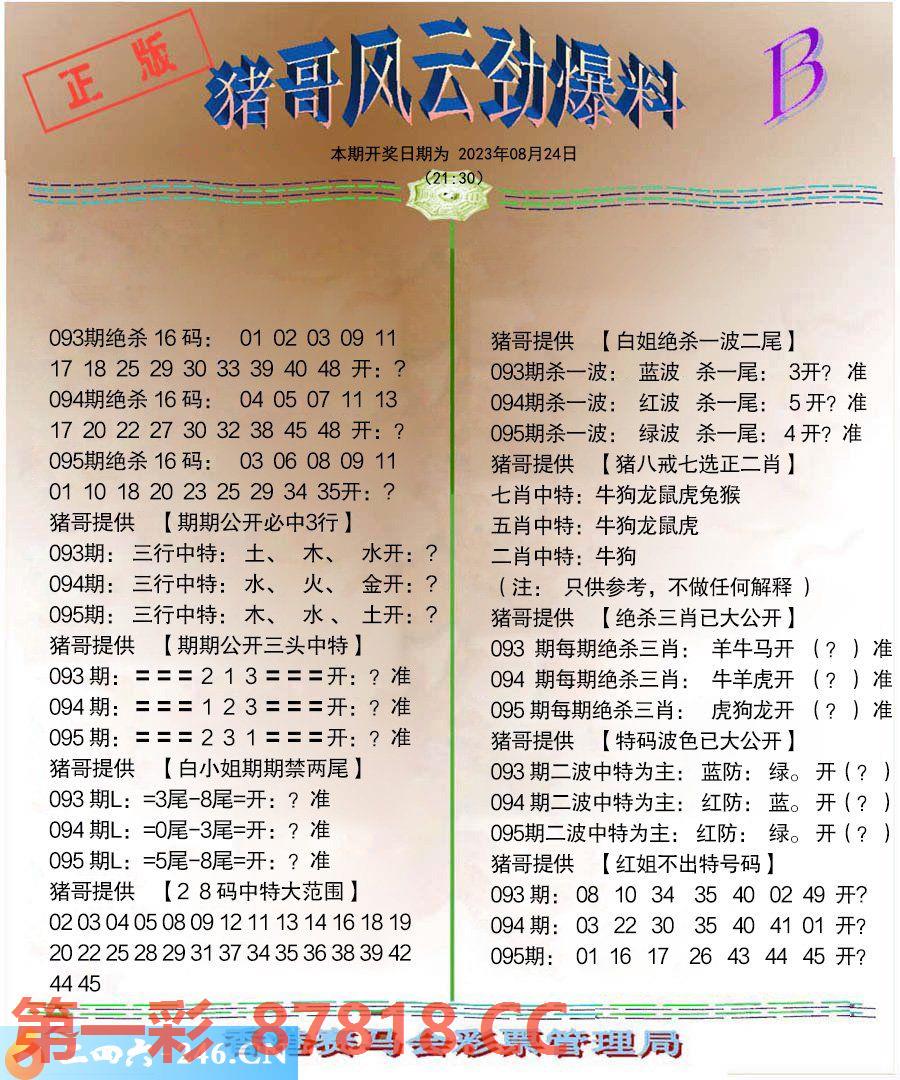 正版
猪哥风云劲爆料
B
本期开奖日期为 2023年08月24日
(21:30)
093期绝杀 16 码： 01 02 03 09 11
17 18 25 29 30 33 39 40 48 开：?
094期绝杀 16 码： 04 05 07 11 13
17 20 22 27 30 32 38 45 48 开：?
095期绝杀 16 码： 03 06 08 09 11
01 10 18 20 23 25 29 34 35开：?
猪哥提供 【期期公开必中3行】
093期： 三行中特： 土、 木、 水开：?
094期： 三行中特： 水、 火、 金开：?
095期： 三行中特： 木、 水 、 土开：?
猪哥提供 【期期公开三头中特】
093 期：〓〓〓２１３〓〓〓开：? 准
094 期：〓〓〓１２３〓〓〓开：? 准
095 期：〓〓〓２３１〓〓〓开：? 准
猪哥提供 【白小姐期期禁两尾】
093 期L：=3尾-8尾=开：? 准
094 期L：=0尾-3尾=开：? 准
095 期L：=5尾-8尾=开：? 准
猪哥提供 【２８码中特大范围】
02 03 04 05 08 09 12 11 13 14 16 18 19
20 22 25 28 29 31 37 34 35 36 38 39 42
44 45
猪哥提供 【白姐绝杀一波二尾】
093期杀一波： 蓝波 杀一尾： 3开? 准
094期杀一波： 红波 杀一尾： 5 开? 准
095期杀一波： 绿波 杀一尾： 4 开? 准
猪哥提供 【猪八戒七选正二肖】
七肖中特：牛狗龙鼠虎兔猴
五肖中特：牛狗龙鼠虎
二肖中特：牛狗
（注： 只供参考，不做任何解释 ）
猪哥提供 【绝杀三肖已大公开】
093 期每期绝杀三肖： 羊牛马开 （? ）准
094 期每期绝杀三肖： 牛羊虎开 （? ）准
095 期每期绝杀三肖： 虎狗龙开 （? ）准
猪哥提供 【特码波色已大公开】
093 期二波中特为主： 蓝防： 绿。 开（? ）
094 期二波中特为主： 红防： 蓝。 开（? ）
095期二波中特为主： 红防： 绿。 开（? ）
猪哥提供 【红姐不出特号码】
093 期： 08 10 34 35 40 02 49 开?
094 期： 03 22 30 35 40 41 01 开?
095期： 01 16 17 26 43 44 45 开?
第一彩 87818.CC
二四六 246.CN
香港赛马会彩票管理局